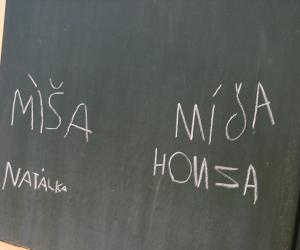 MÌŠA
MÍJA
NATÁLKA
HONZA